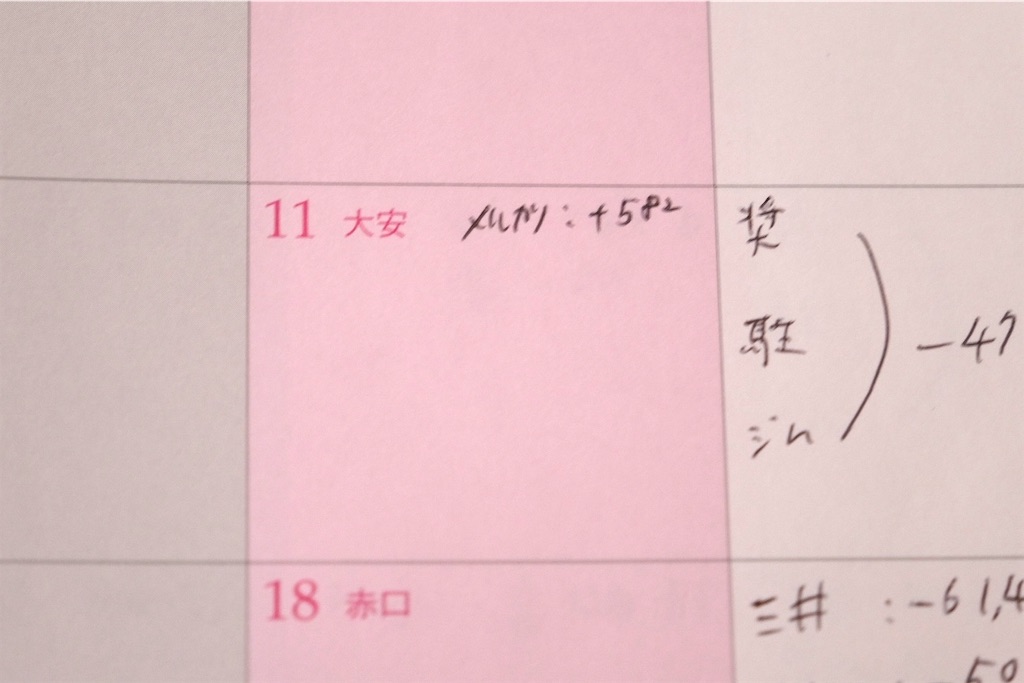 11 大安 メルカリ:+582
奨
駐
ジム
-47
18 赤口
三井 :-61,4
-50